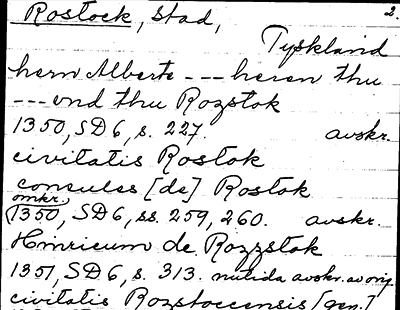 Rostock, stad, 2.
Tyskland
hern Alberte --- heren thu
--- vnd thu Rozstok
1350, SD6, s. 227. avskr.
civitatis Rostok
consules [de] Rostok
omkr.
(1350, SD6, ss. 259, 260. avskr.
Hinricum de Rozzstok
1351, SD6, s. 313. nutida avskr. av orig
civitatis Rozstoccensis [gen.]